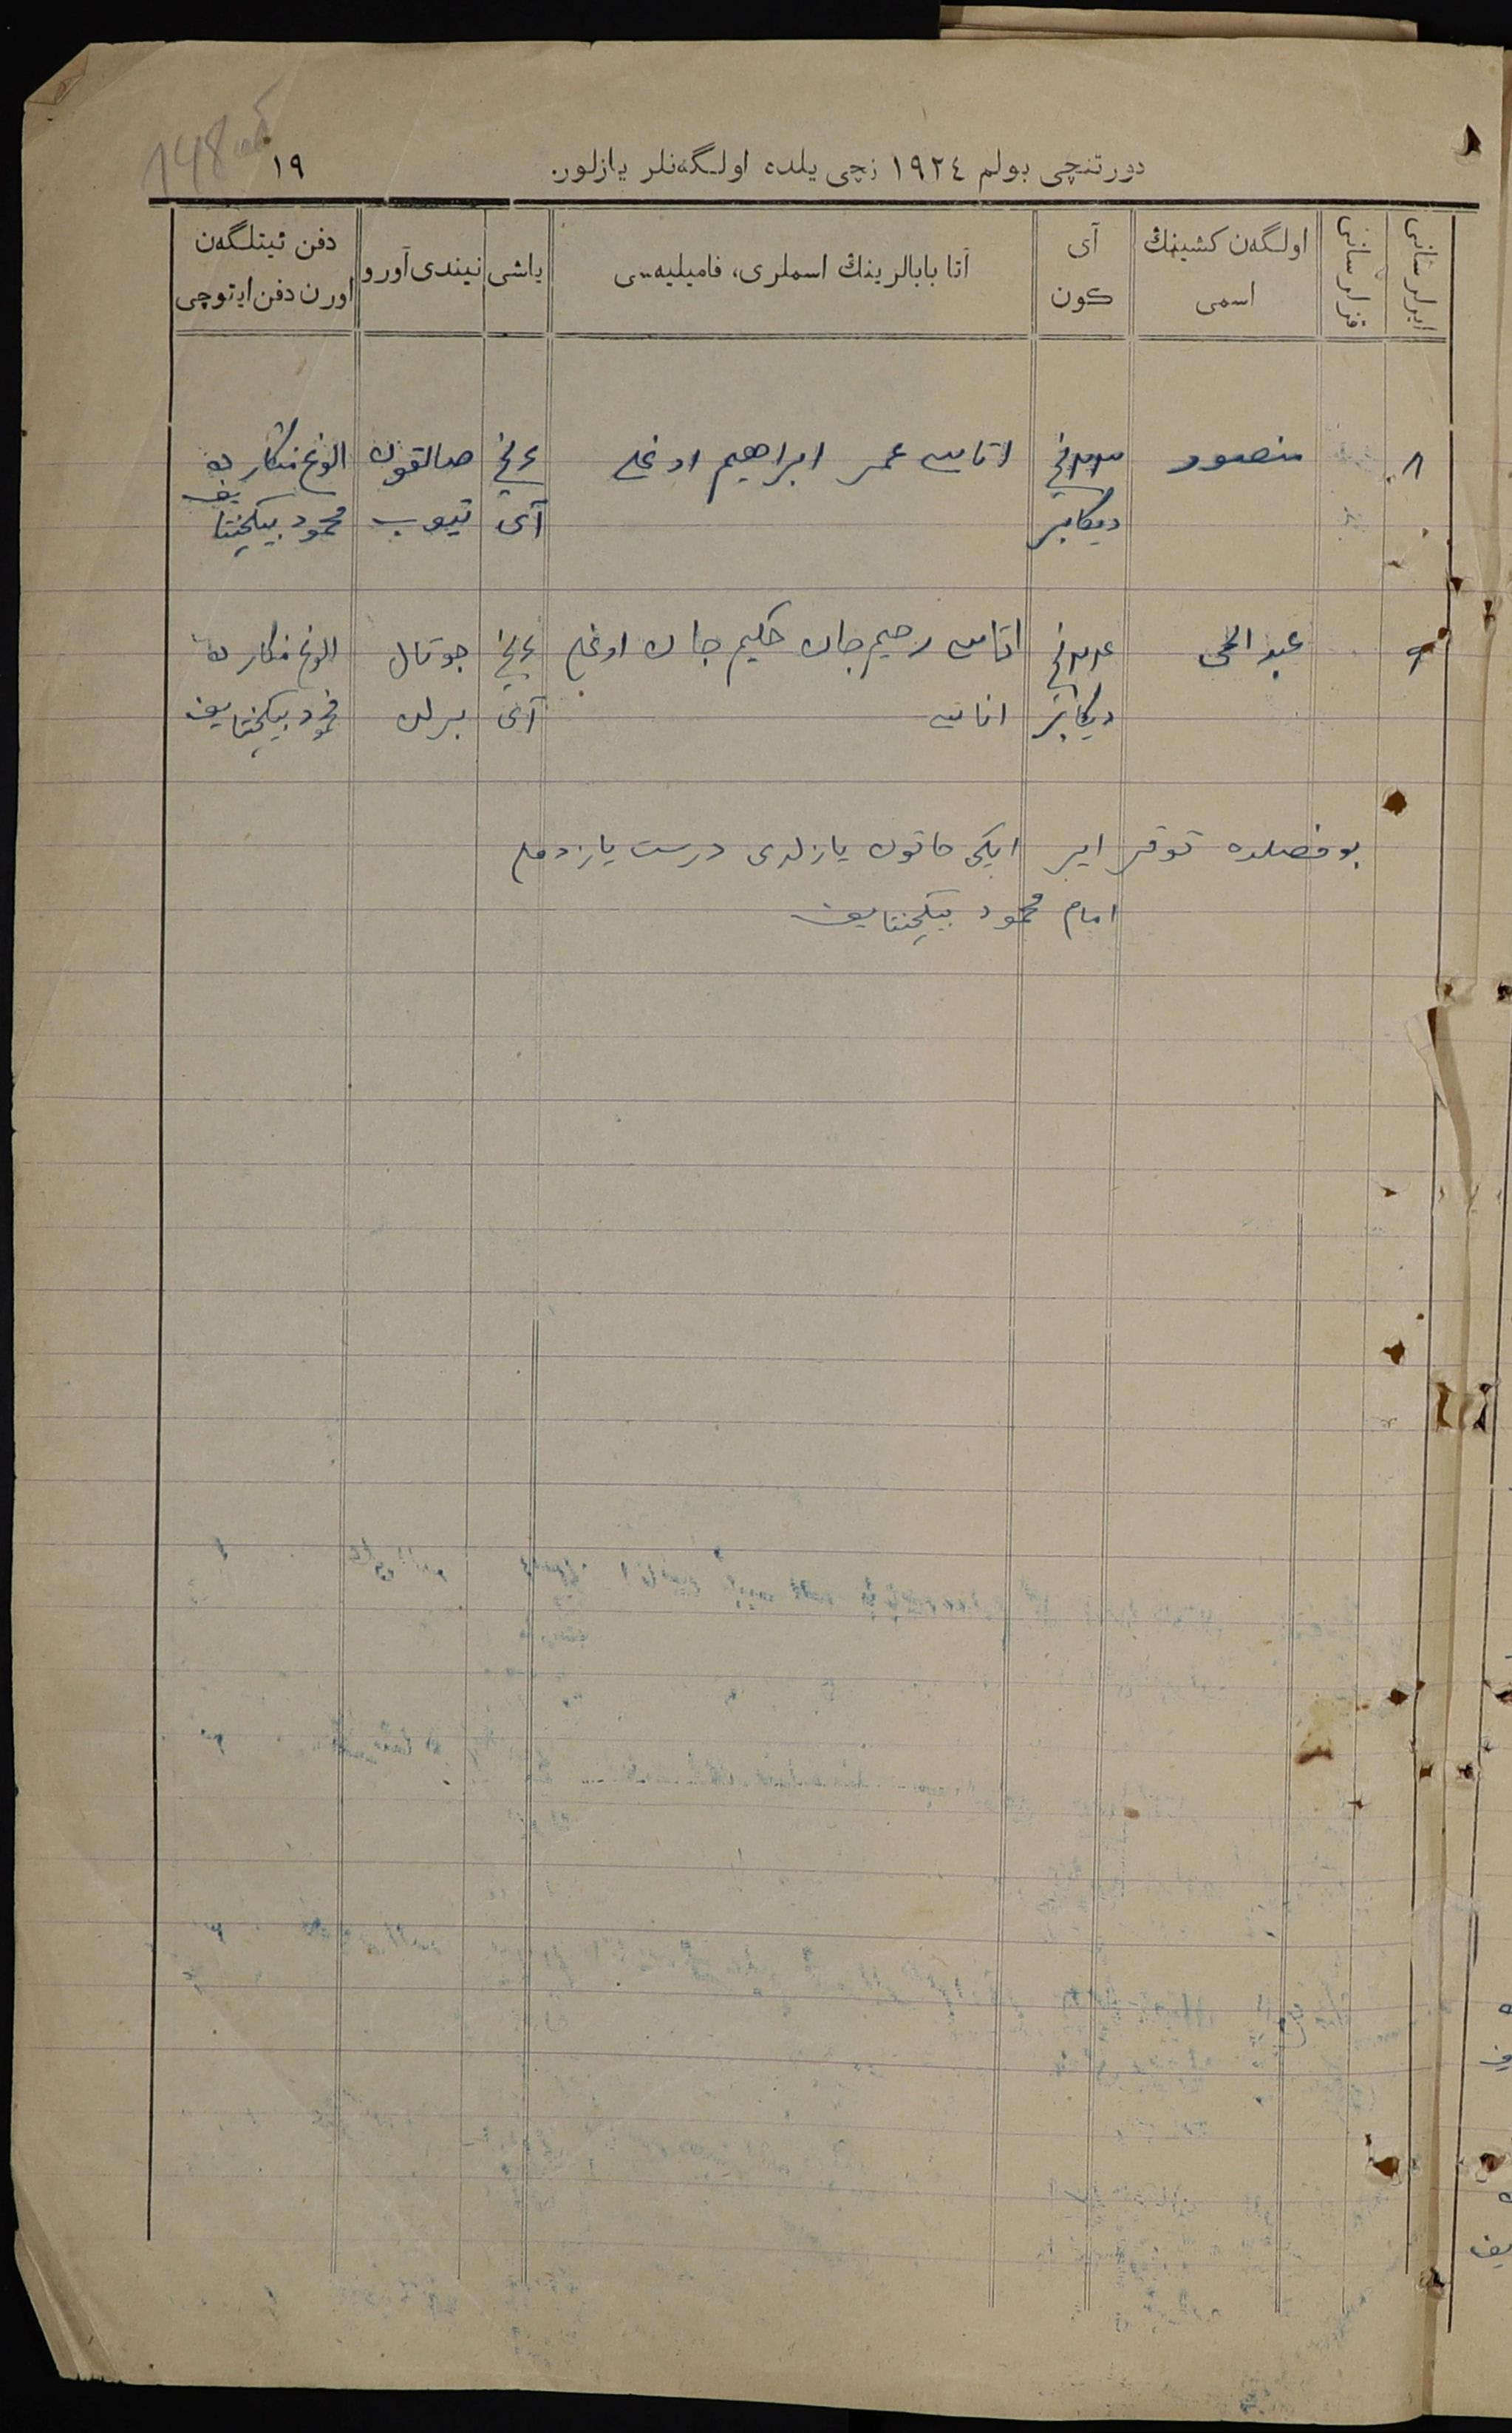 دورتنچی بولم ١٩٢٤ نچی یلده اولگەنلر یازلور.
١٩
148 об
ایرلر سانی
قزلر سانی
اولگەن کشینڭ اسمی
آی کون
آتا بابالرینڭ اسملری، فامیلیەسی
یاشی
نیندی آورو
دفن ئیتلگەن اورن دفن ایتوچی
٨
منصور
٢٣نچی دیکابر
اتاسی عمر ابراهیم اوغلی
٤نچی آی
صالقون تیوب
محمود بیکچنتایف
٩
عبد الحی
٢٤نچی دیکابر
اتاسی رحیم جان حکیم جان اوغلی
اناسی
٤نچی آی
جوتال برلن
محمود بیکچنتایف
بو فصلده توقز ایر ایکی خاتون یازلدی درست یازدم
امام محمود بیکچنتایف